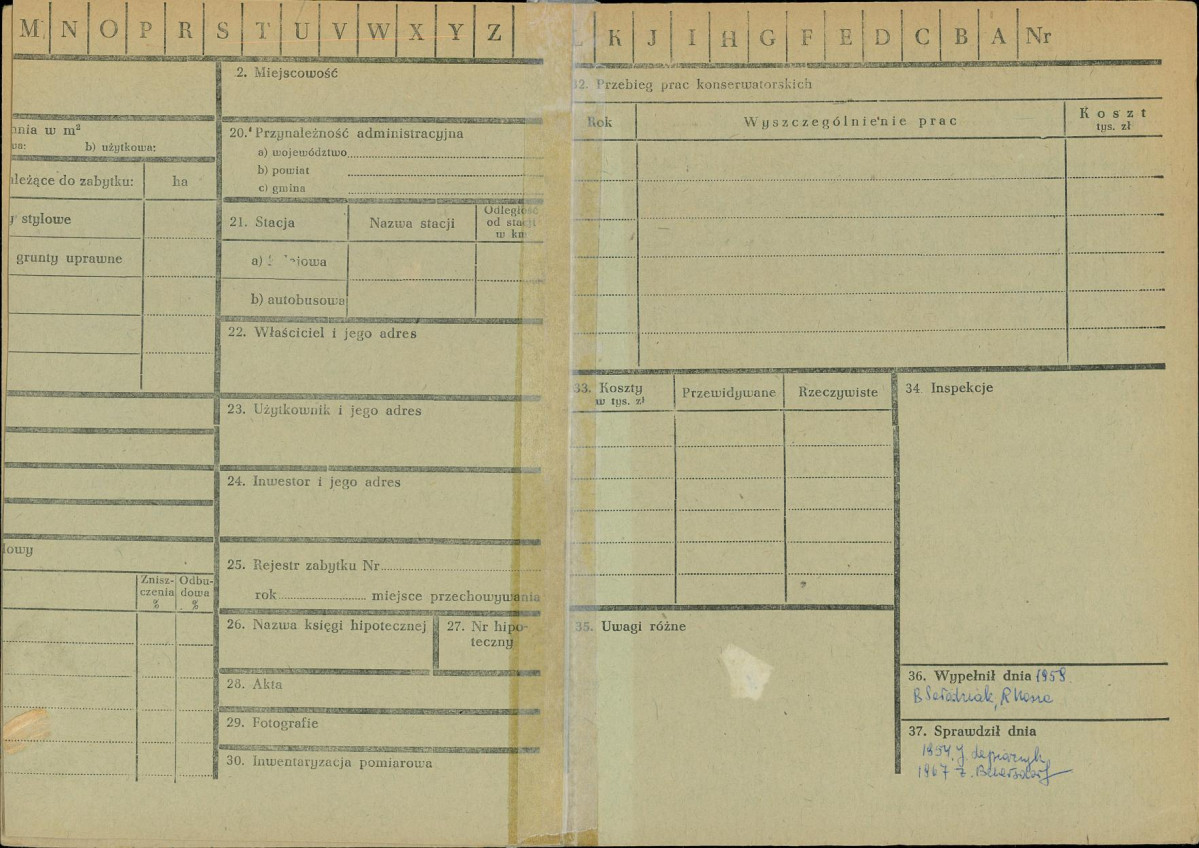 M N O P R S T U V W X Y Z
L K J I H G F E D C B A Nr
2. Miejscowość
w m²
b) użytkowa:
do zabytku:
ha
stylowe
grunty uprawne
20. Przynależność administracyjna
a) województwo
b) powiat
c) gmina
21. Stacja
Nazwa stacji
Odległość
od stacji
w km
a)
b) autobusowa
22. Właściciel i jego adres
23. Użytkownik i jego adres
24. Inwestor i jego adres
25. Rejestr zabytku Nr
rok miejsce przechowywania
Znisz-
czenia
%
Odbu-
dowa
%
26. Nazwa księgi hipotecznej
27. Nr hipo-
teczny
28. Akta
29. Fotografie
30. Inwentaryzacja pomiarowa
32. Przebieg prac konserwatorskich
Rok
Wyszczególnienie prac
Koszt
tys. zł
33. Koszty
w tys. zł
Przewidywane
Rzeczywiste
34. Inspekcje
35. Uwagi różne
36. Wypełnił dnia 1958
B
37. Sprawdził dnia
J.
1967 Z.